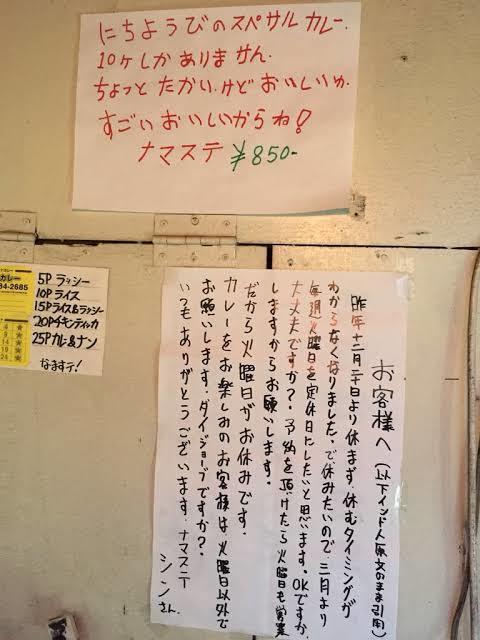 にちようびのスペサルカレー.
10ケしかありません.
ちょっとたかい.けどおいしいyo.
すごいおいしいからね!
ナマステ ¥850-
カレー
84-2685
4
9
14
19
24
5P ラッシー
10P ライス
15P ライス&ラッシー
20P チキンティルカ
25P カレー&ナン
なますテ!
お客様へ(以下インド人原文のまま引用)
昨年十二月二十日より休まず.休むタイミングが
わからなくなりました.で休みたいので.三月より
毎週火曜日を定休日にしたいと思います。OKですか.
大丈夫ですか?.予約を頂けたら火曜日も営業
しますからお願いします.
だから火曜日がお休みです.
カレーをお楽しみのお客様は火曜日以外で
お願いします.ダイジョーブですか?.
いつもありがとうございます.ナマステー
シンさん.